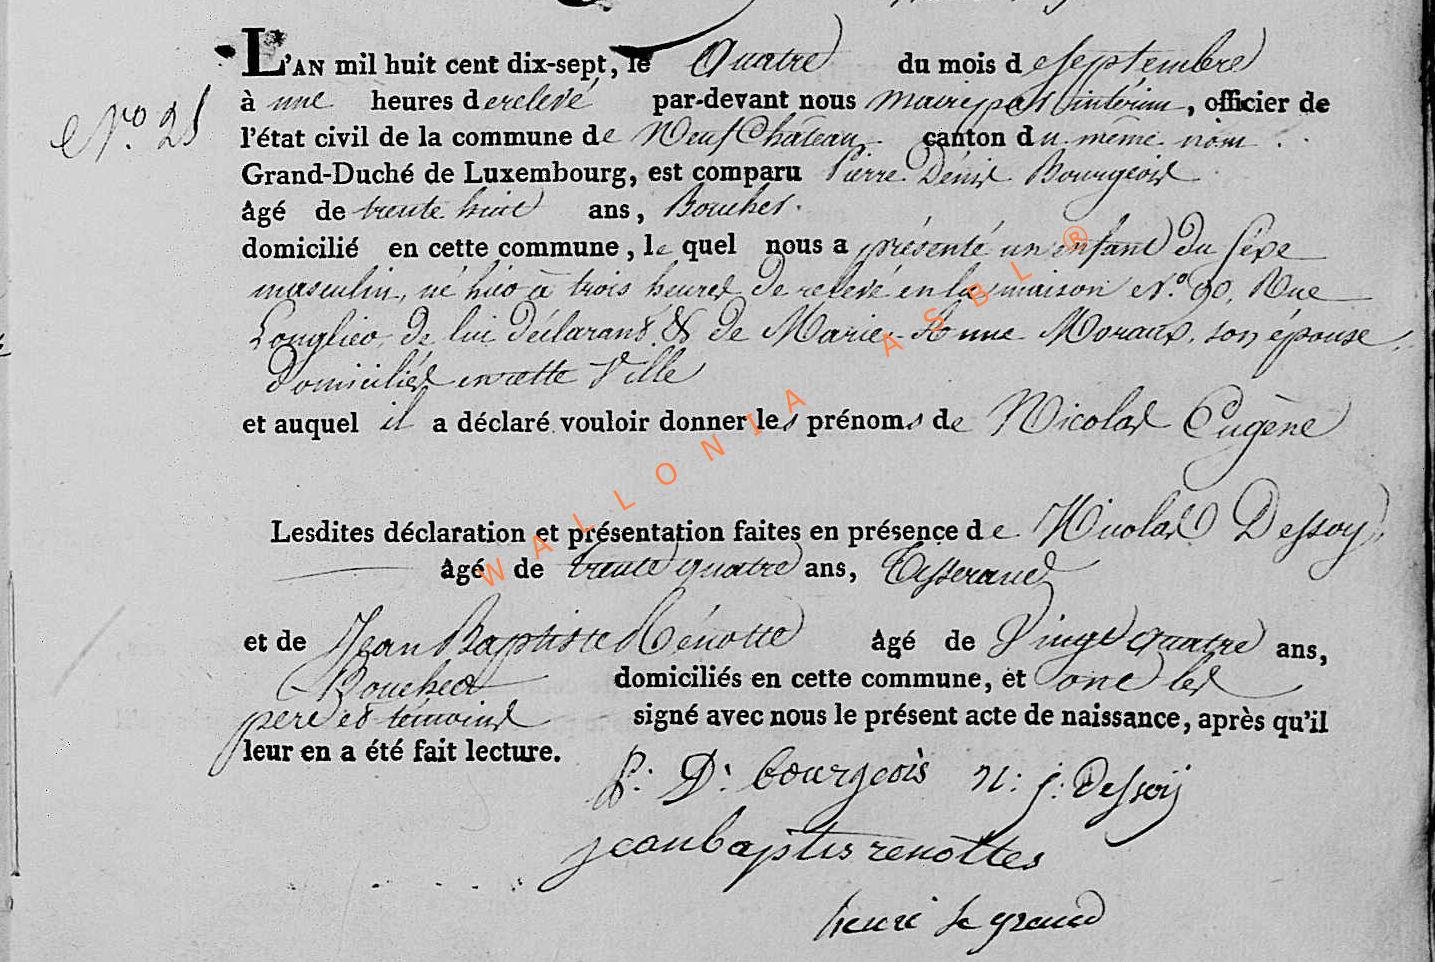 L'AN mil huit cent dix-sept, le Quatre du mois de septembre
No. 25 à une heures de relevé par-devant nous maire par intérim, officier de
l'état civil de la commune de Neufchâteau canton du même nom
Grand-Duché de Luxembourg, est comparu Pierre Dénis Bourgeois
âgé de trente huit ans, Boucher.
domicilié en cette commune, le quel nous a présenté un enfant du sexe
masculin, né hier à trois heures de relevé en la maison No. 90, Rue
Longlier, de lui déclarant & de Marie-Anne Moraux, son épouse,
domiciliés en cette Ville
et auquel il a déclaré vouloir donner les prénoms de Nicolas Eugène
Lesdites déclaration et présentation faites en présence de Nicolas Dessoy,
âgé de trente quatre ans, Tisserand
et de Jean Baptiste Rénotte âgé de Vingt quatre ans,
Boucher domiciliés en cette commune, et ont les
pere et témoins signé avec nous le présent acte de naissance, après qu'il
leur en a été fait lecture.
P. D. bourgeois n: j: Dessoÿ
jean baptis renottes
henri le grand
WALLONIA ASBL ®